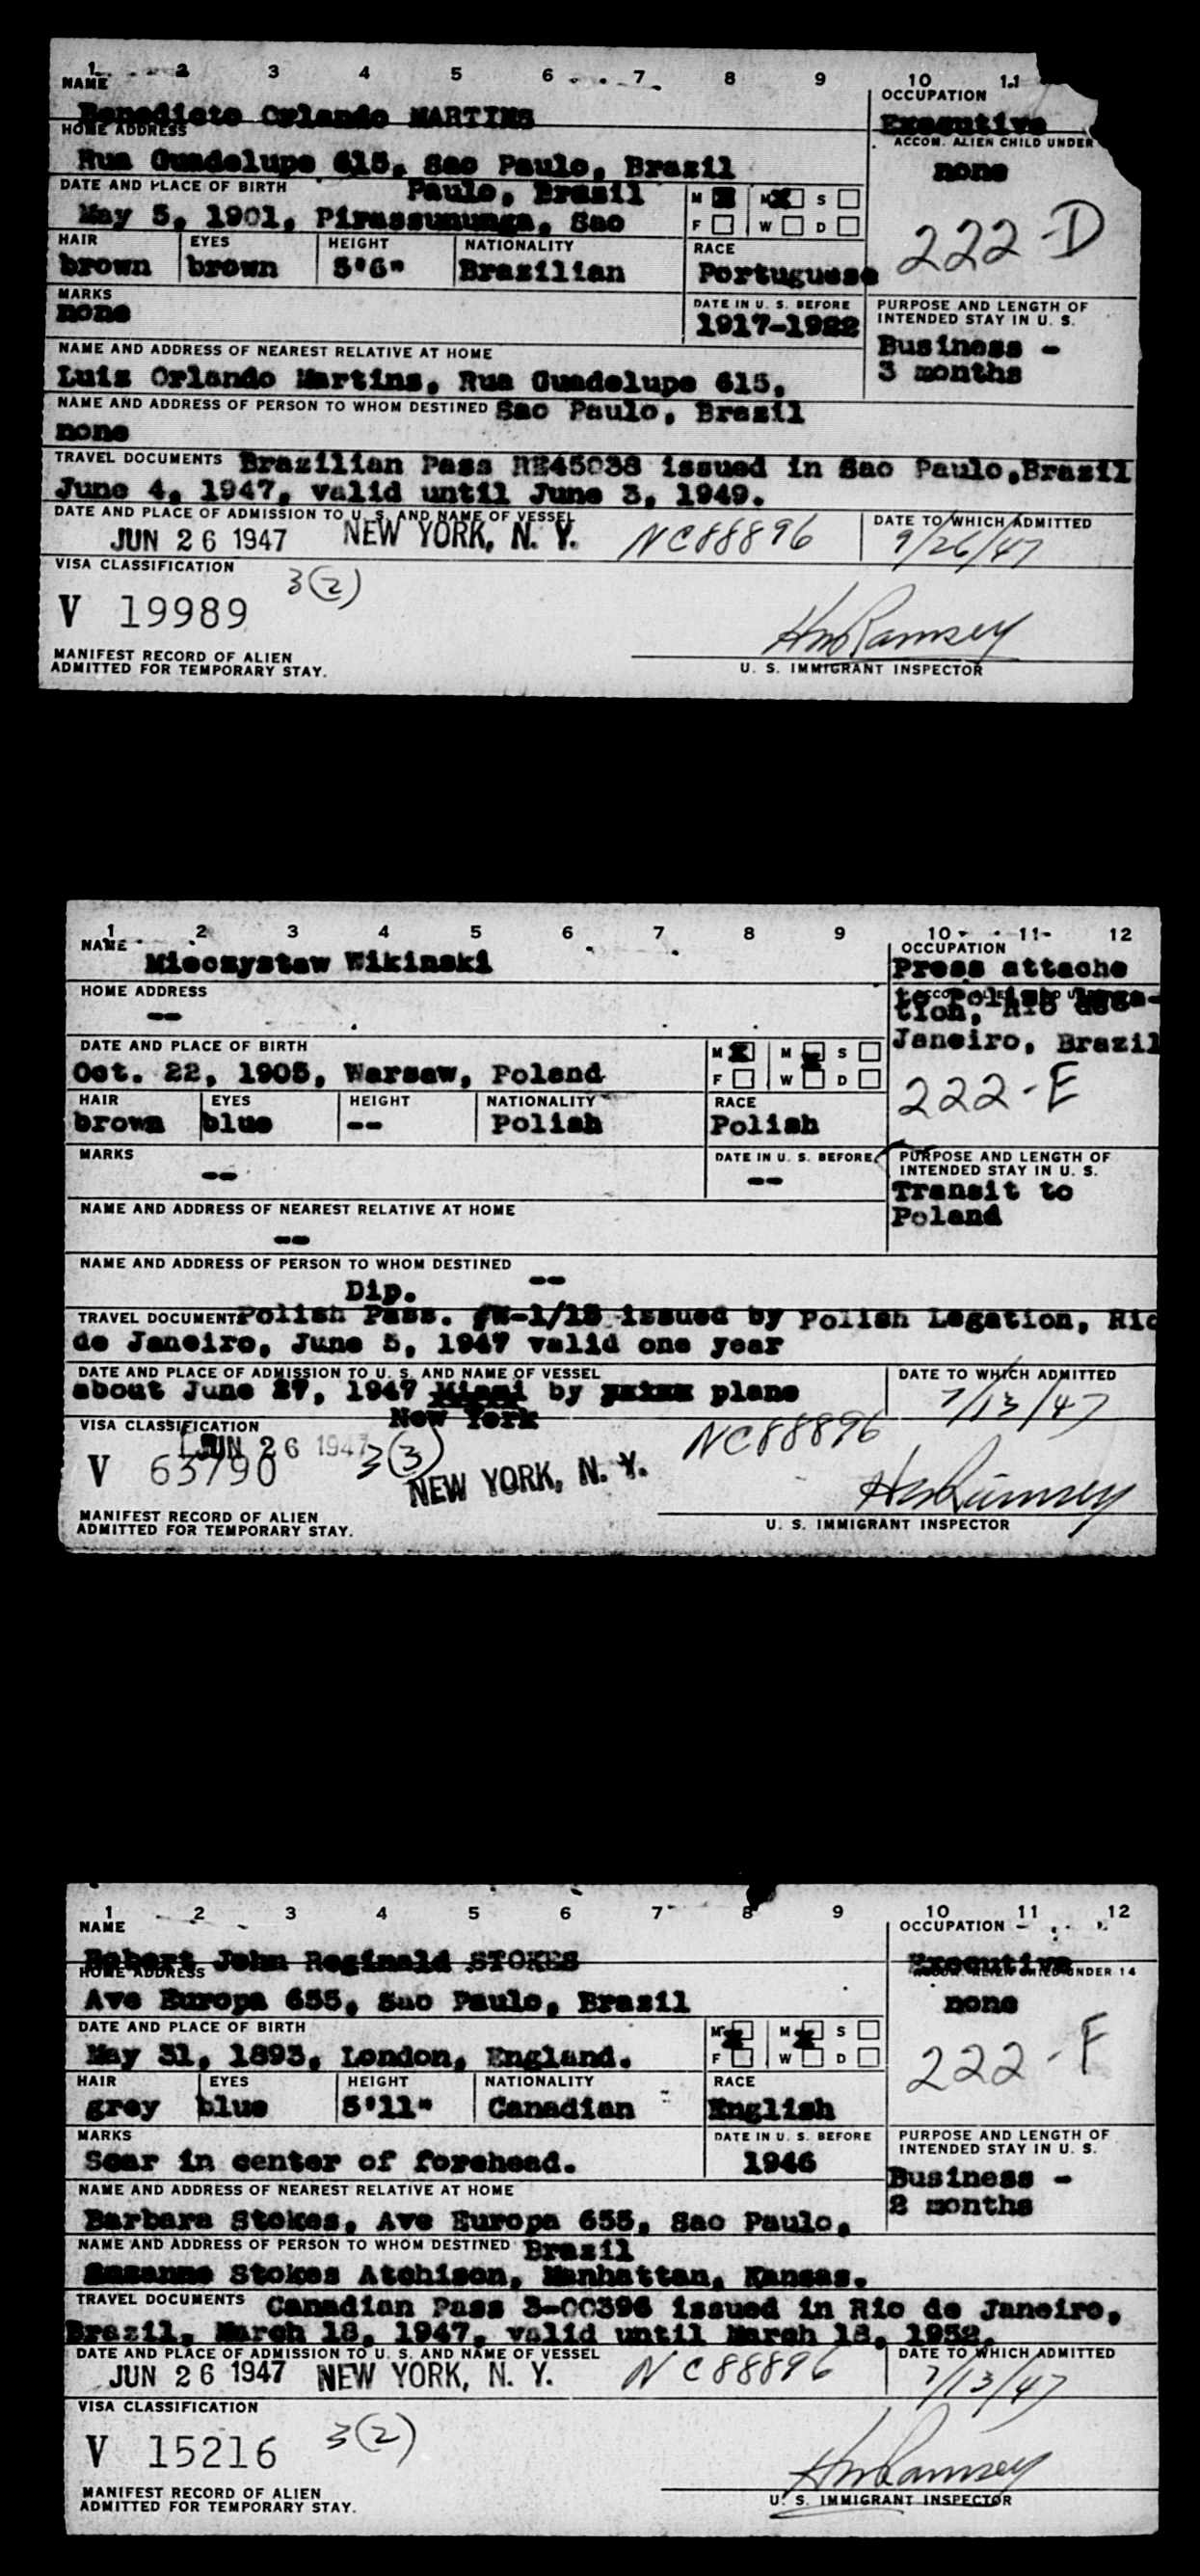 1 2 3 4 5 6 7 8 9 10 11
NAME
OCCUPATION
Benedicto Orlando MARTINS
Executive
HOME ADDRESS
ACCOM. ALIEN CHILD UNDER
Rua Guadelupe 615, Sao Paulo, Brazil
none
DATE AND PLACE OF BIRTH
Paulo, Brasil
M M S
May 5, 1901, Pirassununga, Sao
F W D
222-D
HAIR EYES HEIGHT NATIONALITY RACE
brown brown 5'6" Brazilian Portuguese
MARKS
DATE IN U. S. BEFORE
PURPOSE AND LENGTH OF
INTENDED STAY IN U. S.
none
1917-1922
Business -
3 months
NAME AND ADDRESS OF NEAREST RELATIVE AT HOME
Luiz Orlando Martins, Rua Guadelupe 615,
NAME AND ADDRESS OF PERSON TO WHOM DESTINED Sao Paulo, Brazil
none
TRAVEL DOCUMENTS Brazilian Pass issued in Sao Paulo, Brazil
June 4, 1947, valid until June 3, 1949.
DATE AND PLACE OF ADMISSION TO U. S. AND NAME OF VESSEL
DATE TO WHICH ADMITTED
JUN 26 1947 NEW YORK, N. Y. NC88896
9/26/47
VISA CLASSIFICATION
3(2)
V 19989
MANIFEST RECORD OF ALIEN
ADMITTED FOR TEMPORARY STAY.
U. S. IMMIGRANT INSPECTOR
1 2 3 4 5 6 7 8 9 10 11 12
NAME
OCCUPATION
Mieczystaw Wikinski
Press attache
to Polish Lega-
tion, Rio de
Janeiro, Brazil
HOME ADDRESS
--
DATE AND PLACE OF BIRTH
M M S
Oct. 22, 1905, Warsaw, Poland
F W D
222-E
HAIR EYES HEIGHT NATIONALITY RACE
brown blue -- Polish Polish
MARKS
DATE IN U. S. BEFORE
PURPOSE AND LENGTH OF
INTENDED STAY IN U. S.
--
--
Transit to
Poland
NAME AND ADDRESS OF NEAREST RELATIVE AT HOME
--
NAME AND ADDRESS OF PERSON TO WHOM DESTINED
--
Dip.
TRAVEL DOCUMENT Polish Pass. issued by Polish Legation, Rio
de Janeiro, June 5, 1947 valid one year
DATE AND PLACE OF ADMISSION TO U. S. AND NAME OF VESSEL
DATE TO WHICH ADMITTED
about June 27, 1947 Miami by plane
New York
7/13/47
VISA CLASSIFICATION
NC88896
JUN 26 1947
V 63790
3(3)
NEW YORK, N. Y.
MANIFEST RECORD OF ALIEN
ADMITTED FOR TEMPORARY STAY.
U. S. IMMIGRANT INSPECTOR
1 2 3 4 5 6 7 8 9 10 11 12
NAME
OCCUPATION
Robert John Reginald STOKES
Executive
HOME ADDRESS
UNDER 14
Ave Europa 655, Sao Paulo, Brazil
none
DATE AND PLACE OF BIRTH
M M S
May 31, 1893, London, England.
F W D
222-F
HAIR EYES HEIGHT NATIONALITY RACE
grey blue 5'11" Canadian English
MARKS
DATE IN U. S. BEFORE
PURPOSE AND LENGTH OF
INTENDED STAY IN U. S.
Scar in center of forehead.
1946
Business -
2 months
NAME AND ADDRESS OF NEAREST RELATIVE AT HOME
Barbara Stokes, Ave Europa 655, Sao Paulo,
NAME AND ADDRESS OF PERSON TO WHOM DESTINED Brazil
Suzanne Stokes Atchison, Manhattan, Kansas.
TRAVEL DOCUMENTS Canadian Pass 3-00396 issued in Rio de Janeiro,
Brazil, March 18, 1947, valid until March 18, 1952.
DATE AND PLACE OF ADMISSION TO U. S. AND NAME OF VESSEL
DATE TO WHICH ADMITTED
JUN 26 1947 NEW YORK, N. Y. NC88896
7/13/47
VISA CLASSIFICATION
3(2)
V 15216
MANIFEST RECORD OF ALIEN
ADMITTED FOR TEMPORARY STAY.
U. S. IMMIGRANT INSPECTOR